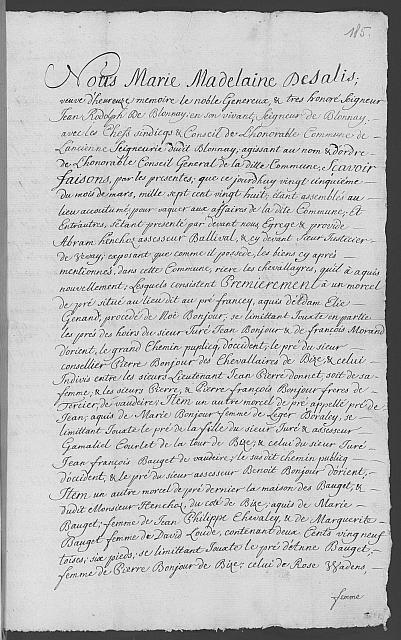 185.
Nous Marie Madelaine Desalis;
veuve d'heureuze memoire le noble Genereux, & tres honoré Seigneur
Jean Rodolph De Blonnay, en son vivant, Seigneur de Blonnay,
avec les Chefs sindicqs & Conseil de L'honorable Commune de
L'ancienne Seigneurie dudit Blonnay, agissant au nom & d'ordre
de L'honorable Conseil General de la ditte Commune, Scavoir
faisons, par les presentes, que ce jourdhuy vingt cinquième
du mois de mars, mille sept cent vingt huit, étant assemblés au
lieu accoutumé, pour vaquer aux affaires de la dite Commune; Et
Entrautres, s'étant presenté par devant nous Egrege & provide
Abram henchoz assesseur Ballival, & cy devant Sieur Justicier
de Vevay; exposant que comme il possede, les biens cy après
mentionnés, dans cette Commune, riere les chevallayres, quil a aquis
nouvellement; Lesquels consistent Premierement à un morcel
de pré situé au lieu dit au pré francey, aquis d'Edam Elie
Genand, procedé de Noé Bonjour, se limittant Jouxte en partie
les prés des hoirs du sieur Juré Jean Bonjour & de françois Morand
d'orient, le grand Chemin puplicq, d'ocident; le pré du sieur
consellier Pierre Bonjour des Chevallaires de Bize, & celui
Indivis entre les sieurs Lieutenant Jean Pierre donnet, soit de sa
femme; & les sieurs Pierre, & Pierre françois Bonjour freres de
Torcier, de vaudaire; Item un autre morcel de pré appellé pré de
Jean; aquis de Marie Bonjour femme de Leger Boraley, se
limittant Jouxte le pré de la fille du sieur Juré & assesseur
Gamaliel Courlet de la tour de Bize; & celui du sieur Juré
Jean françois Bauget de vaudeire; le susdit chemin publiq
d'ocident, & le pré du sieur assesseur Benoit Bonjour d'orient,
Item un autre morcel de pré dernier la maison des Bauget, &
dudit Monsieur Henchoz, du coté de Bize; aquis de Marie
Bauget; femme de Jean Philippe Chevaley, & de Marguerite
Bauget femme de David Louve, contenant deux Cents vingt neuf
toises; six pieds; se limittant Jouxte le pré d'Enne Bauget,
femme de Pierre Bonjour de Bize; celui de Rose Wadens
femme